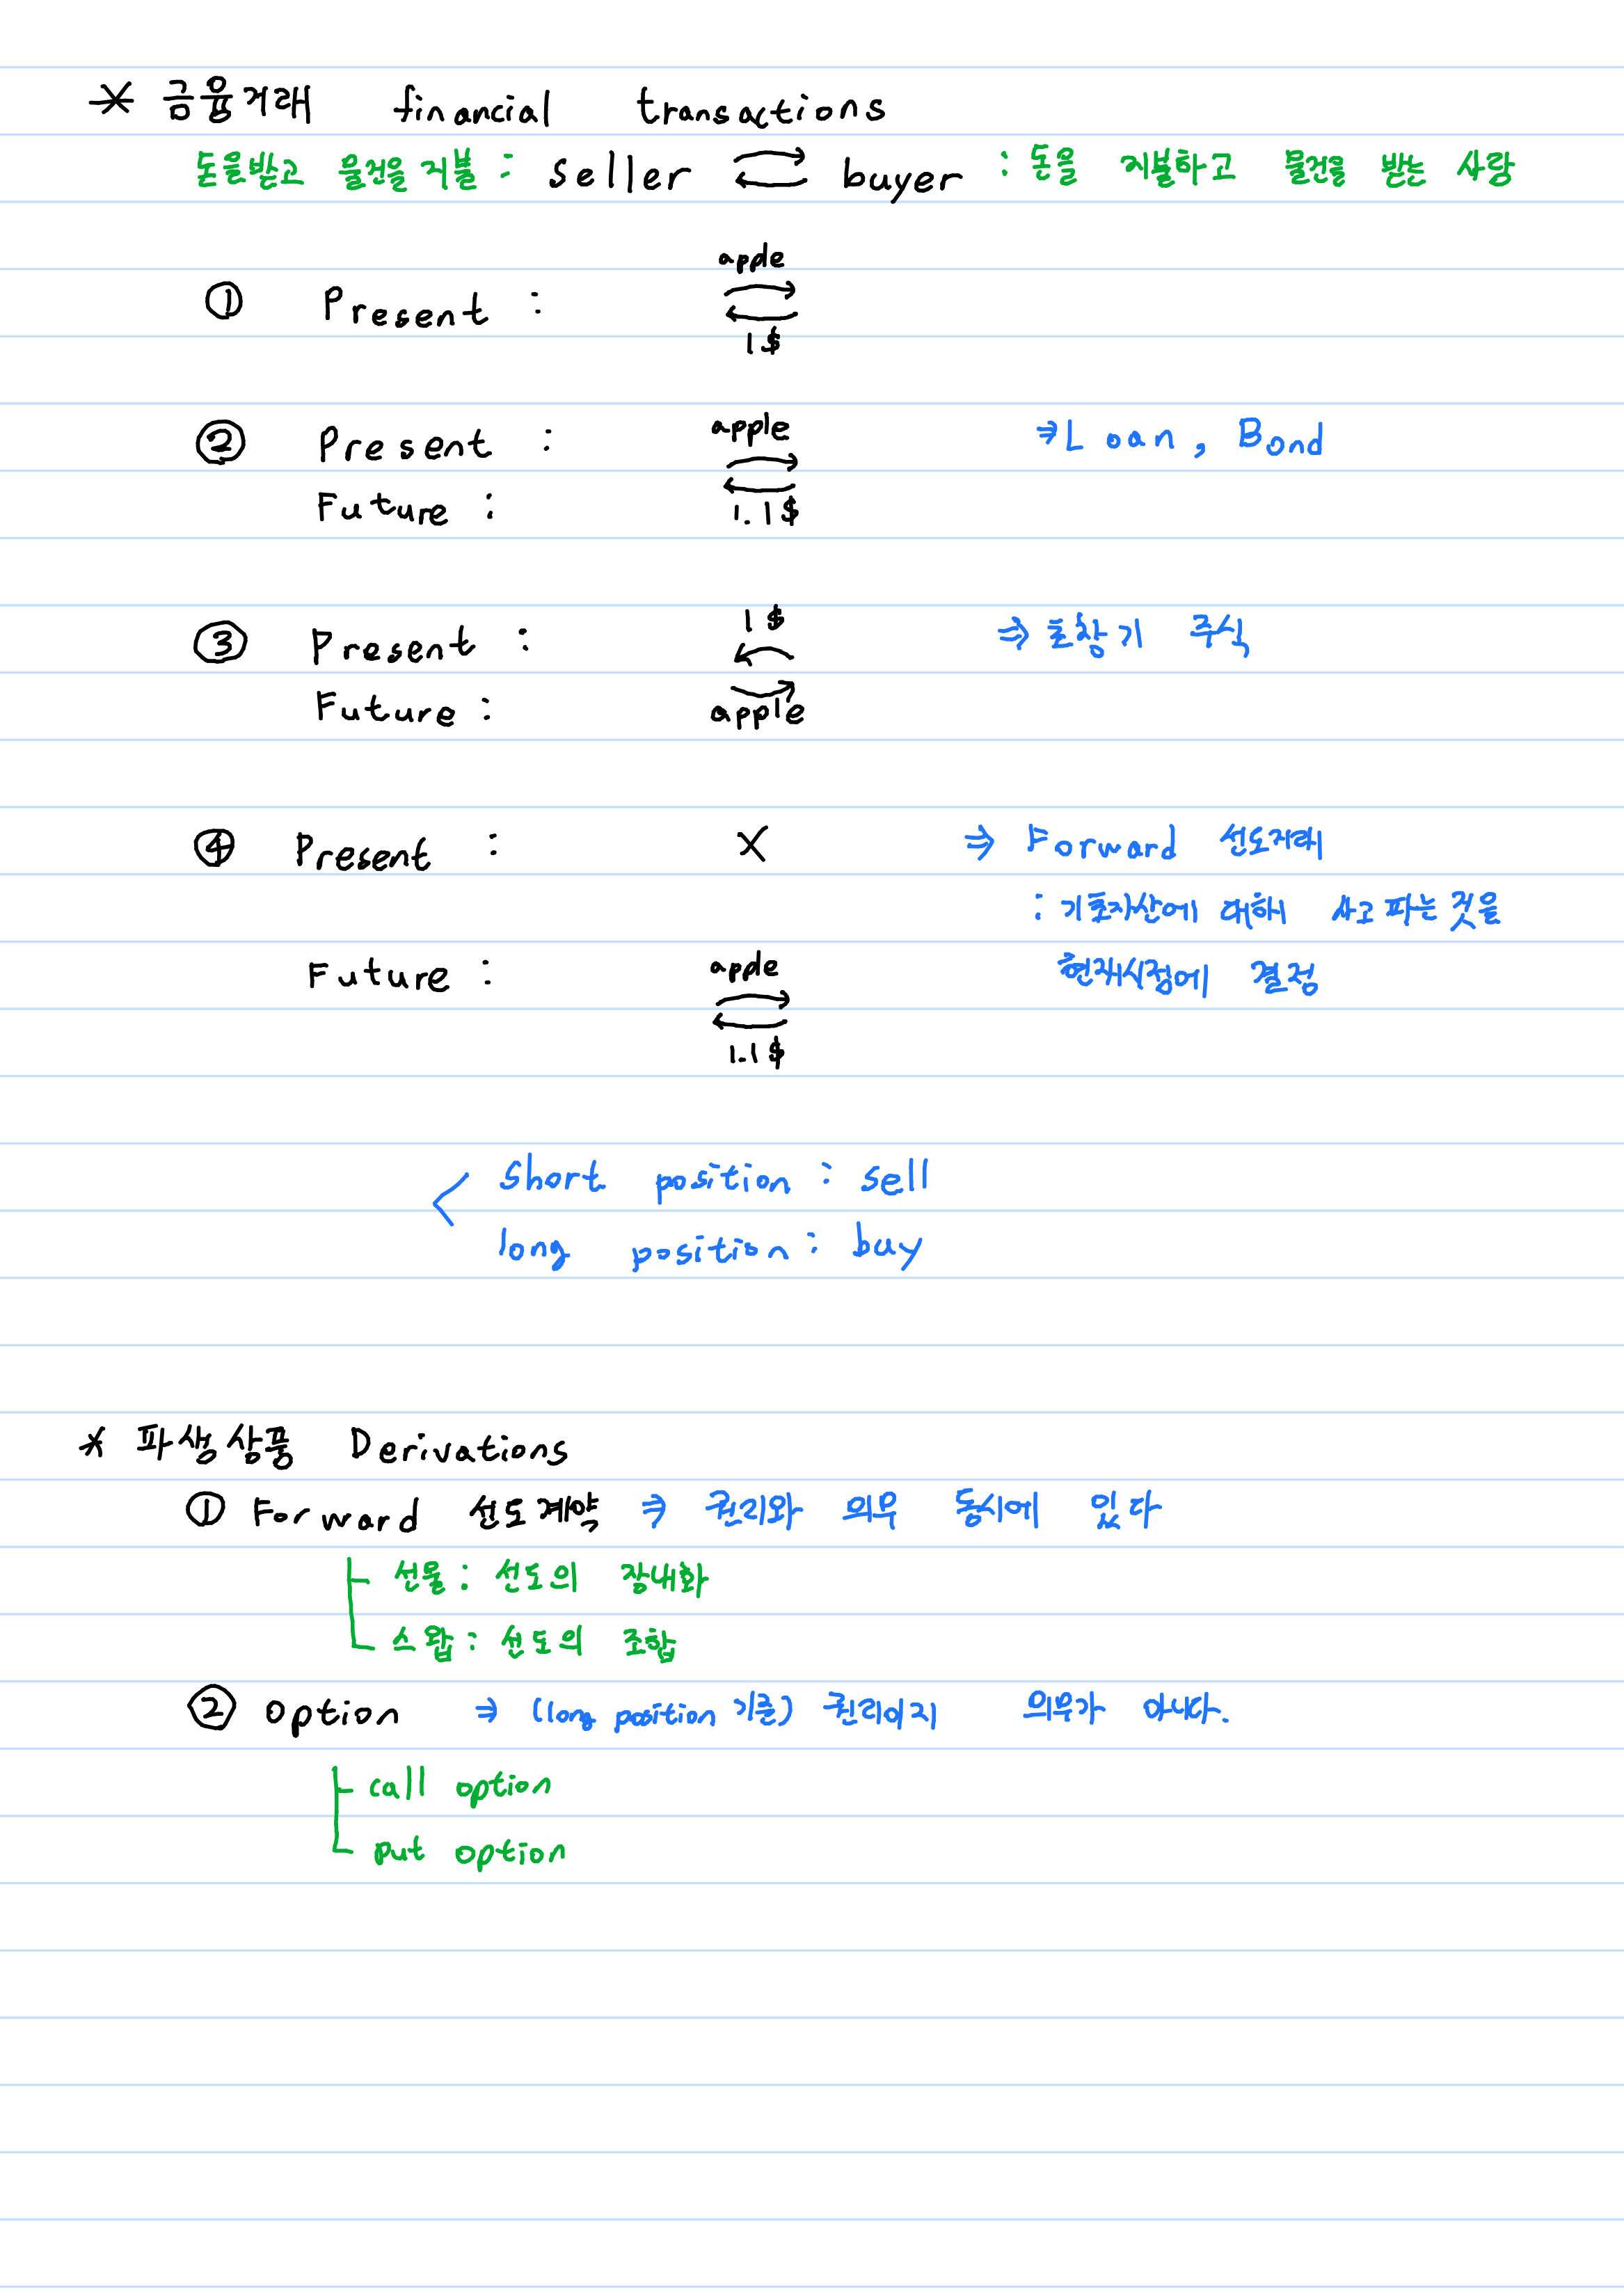 * 금융거래 financial transactions
돈을받고 물건을 지불 : seller ⇄ buyer : 돈을 지불하고 물건을 받는 사람
apple
① Present :
1$
② Present : apple ⇒ Loan, Bond
Future : 1.1$
③ Present : 1$ ⇒ 초창기 주식
Future : apple
④ Present : X ⇒ Forward 선도거래
: 기초자산에 대해 사고 파는 것을
Future : apple 현재시점에 결정
1.1$
< short position : sell
long position : buy
* 파생상품 Derivations
① Forward 선도계약 ⇒ 권리와 의무 동시에 있다
선물 : 선도의 장내화
스왑 : 선도의 조합
② option ⇒ (long position 기준) 권리이지 의무가 아니다.
call option
put option